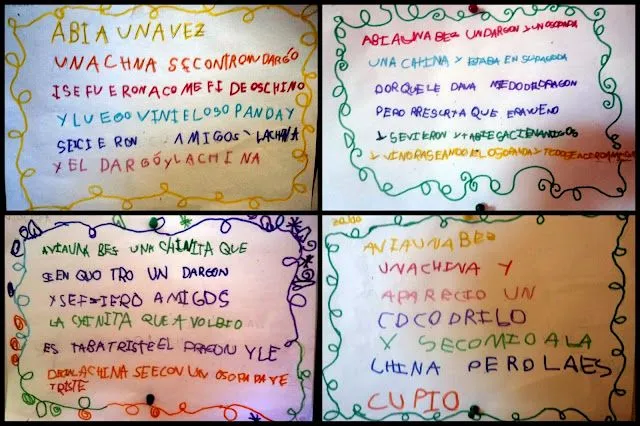 ABIA UNAVEZ
UNACHNA SECONTRONDARGÓ
ISEFUERONACOMEFIDEOSCHINO
YLUEGO VINIELOSO PANDAY
SEICIERON AMIGOS LACHINA
YEL DARGÓYLACHINA
ABIAUNABES UNDARGON YUNOSOPADA
UNA CHINA Y ESTABA EN SUPAGODA
PORQUELE DAVA MEDODELDRAGON
PERO RRESCRTAQUE ERAVUENO
YSEVIERON
Y VINOPASEANDOELOSOPANDA Y TODOS
AVIAUNA BES UNACHINITA QUE
SEENQUOTRO UN DARGON
YSEFIZIERO AMIGOS
LA CHINITA QUEAVOLBIO
ESTABATRISTEEL DRAGON YLE
DECIALACHINA SEECONUN OSOPADAYE
TRISTE
AVIAUNABEZ
UNACHINA Y
APARECIO UN
COCODRILO
Y SECOMIOALA
CHINA PEROLAES
CUPIO